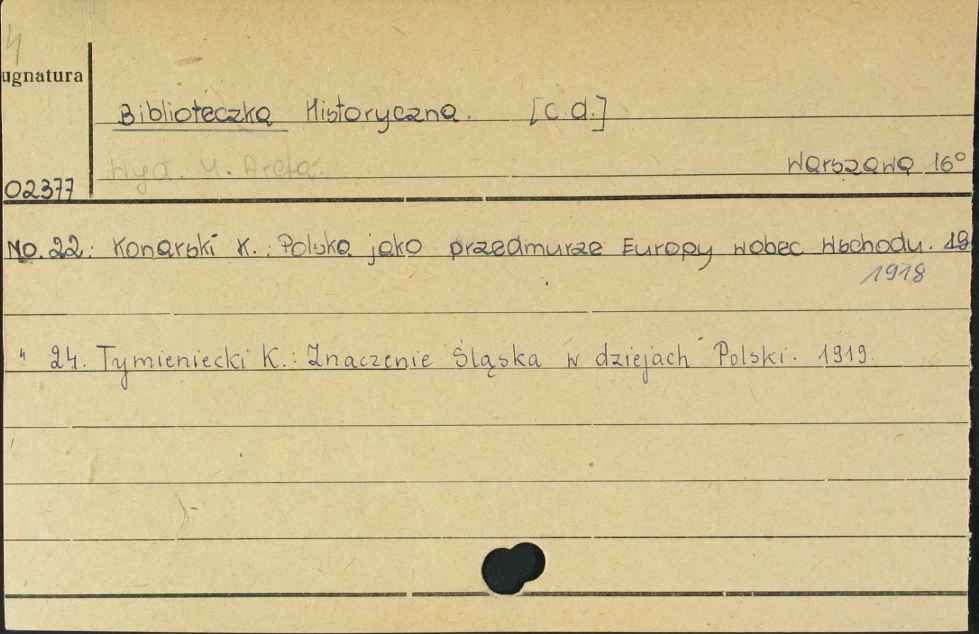 4
ugnatura
Biblioteczka Historyczna. [c.d.]
Wyd. M. Arcta.
Warszawa 16°
02377
No. 22: Konarski K.: Polska jako przedmurze Europy wobec Wschodu. 19
1918
" 24. Tymieniecki K.: Znaczenie Śląska w dziejach Polski. 1919.